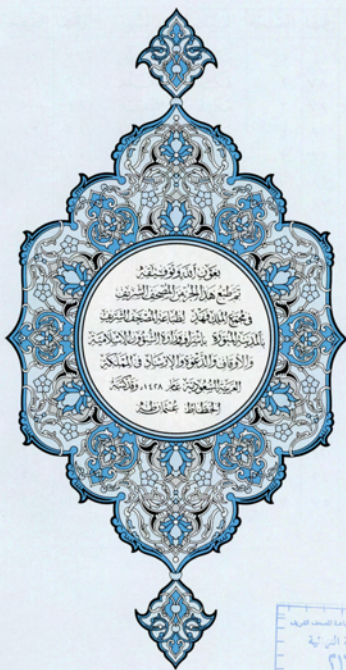 بعون الله وتوفيقه
تم طبع هذا الجزء من المصحف الشريف
في مجمع الملك فهد لطباعة المصحف الشريف
بالمدينة المنورة بإشراف وزارة الشؤون الإسلامية
والأوقاف والدعوة والإرشاد في المملكة
العربية السعودية عام ١٤٢٨ وقد كتبه
الخطاط عثمان طه
لطباعة المصحف الشريف